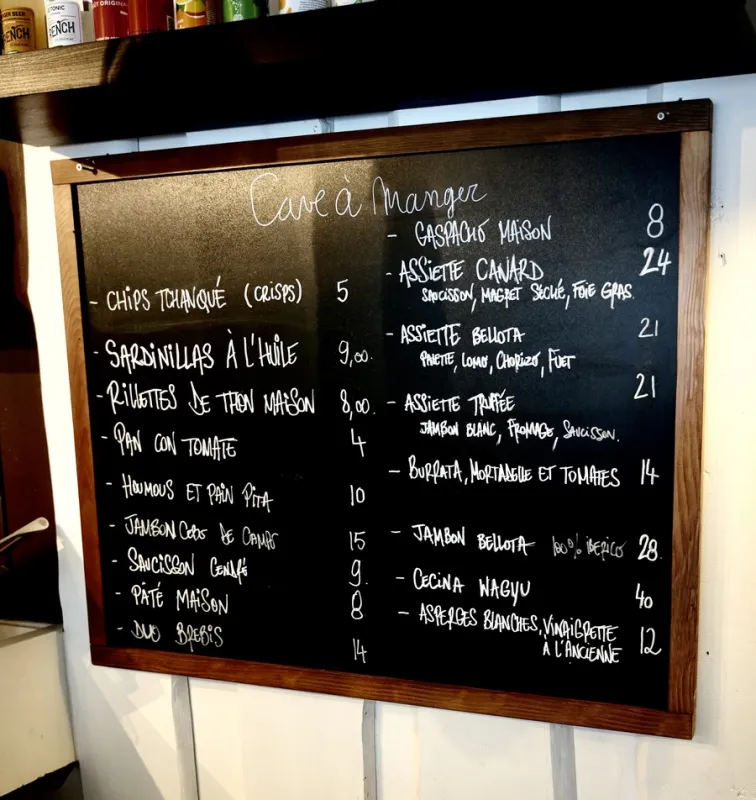 GER BEER
FRENCH
TONIC
FRENCH
ORIGINAL
Cave à Manger
- CHIPS TCHANQUÉ (CRISPS) 5
- SARDINILLAS À L'HUILE 9,00.
- RILLETTES DE THON MAISON 8,00.
- PAN CON TOMATE 4
- HOUMOUS ET PAIN PITA 10
- JAMBON CEBO DE CAMPO 15
- SAUCISSON CENDRÉ 9.
- PÂTÉ MAISON 8
- DUO BREBIS 14
- GASPACHO MAISON 8
- ASSIETTE CANARD 24
SAUCISSON, MAGRET SÉCHÉ, FOIE GRAS.
- ASSIETTE BELLOTA 21
PALETTE, LOMO, CHORIZO, FUET
- ASSIETTE TRUFFÉE 21
JAMBON BLANC, FROMAGE, SAUCISSON.
- BURRATA, MORTADELLE ET TOMATES 14
- JAMBON BELLOTA 100% IBERICO 28.
- CECINA WAGYU 40
- ASPERGES BLANCHES, VINAIGRETTE 12
À L'ANCIENNE